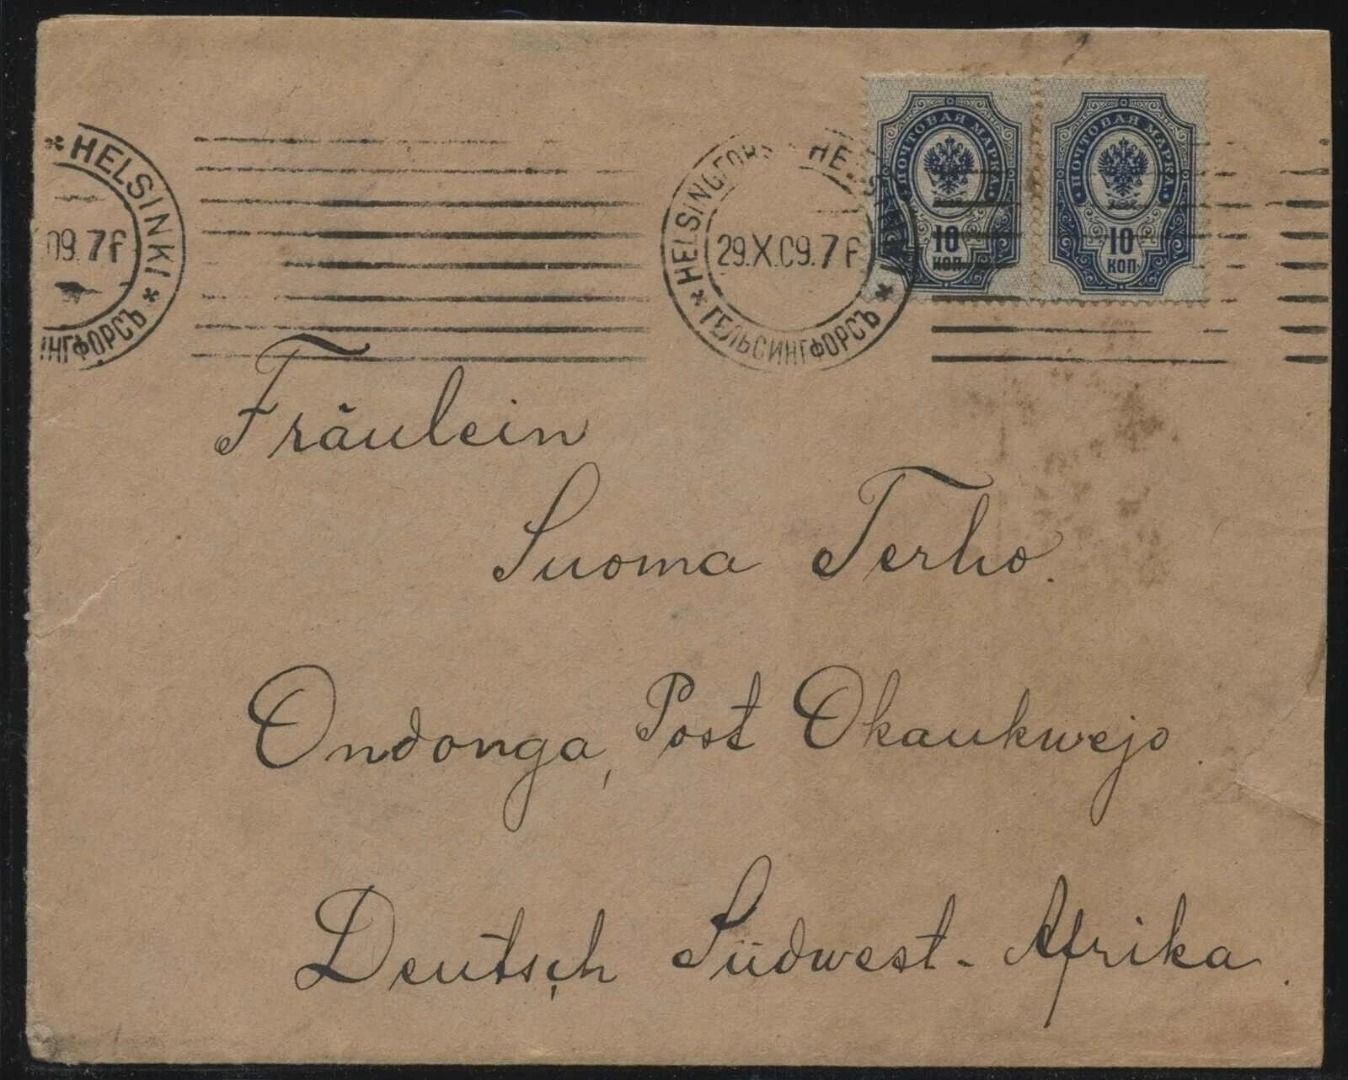 HELSINKI
09.7 F
ИНГФОРСЪ
HELSINGFORS
29.X.09.7 F
ГЕЛЬСИНГФОРСЪ
ПОЧТОВАЯ МАРКА
10
КОП.
ПОЧТОВАЯ МАРКА
10
КОП.
Fräulein
Suoma Terho.
Ondonga, Post Okaukwejo
Deutsch Südwest-Afrika.